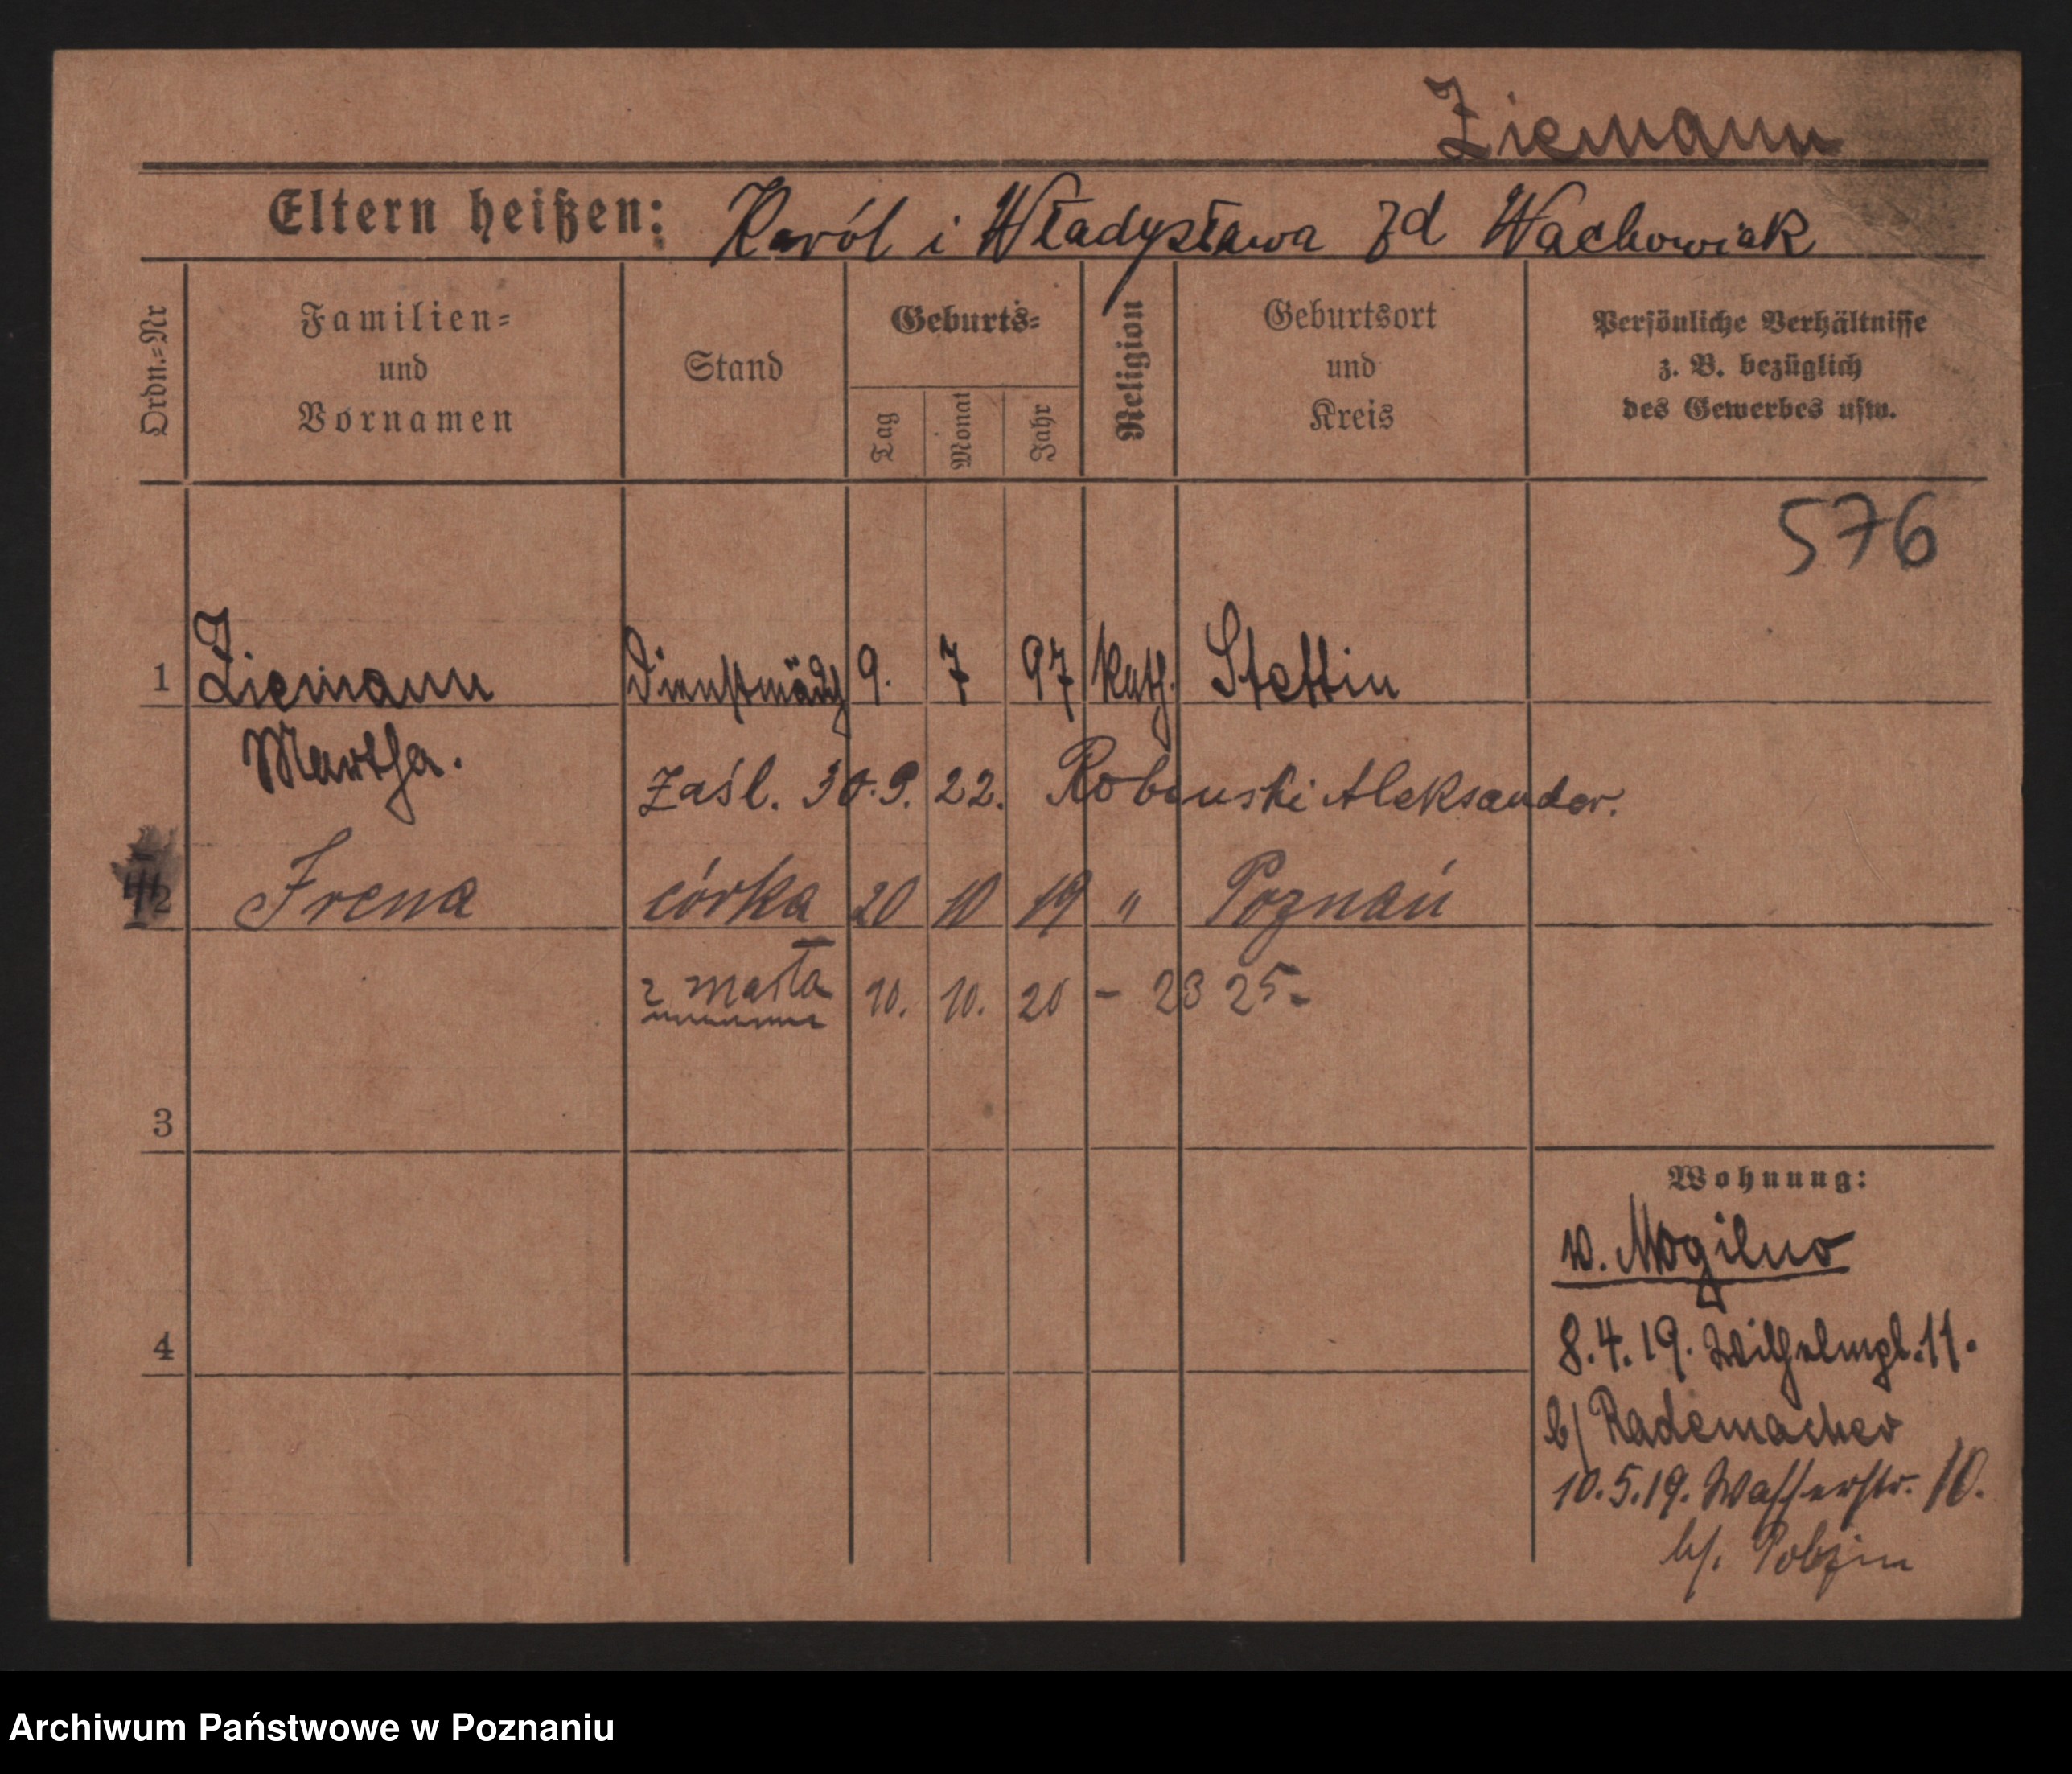 Ziemann
Eltern heißen: Karól i Władysława zd Wachowiak
Ordn.=Nr
Familien=
und
Vornamen
Stand
Geburts=
Tag
Monat
Jahr
Religion
Geburtsort
und
Kreis
Persönliche Verhältnisse
z. B. bezüglich
des Gewerbes usw.
576
1 Ziemann Dienstmädch 9. 7 97 kath. Stettin
Martha.
Zaśl. 30.9. 22. Robinski Aleksander.
2 Irena córka 20 10 19 " Poznań
zmarła 10. 10. 20 – 23 25-
3
Wohnung:
v. Mogilno
4
8.4.19. Wilhelmpl. 11.
b/ Rademacher
10.5.19. Wasserstr. 10.
b/.
Archiwum Państwowe w Poznaniu